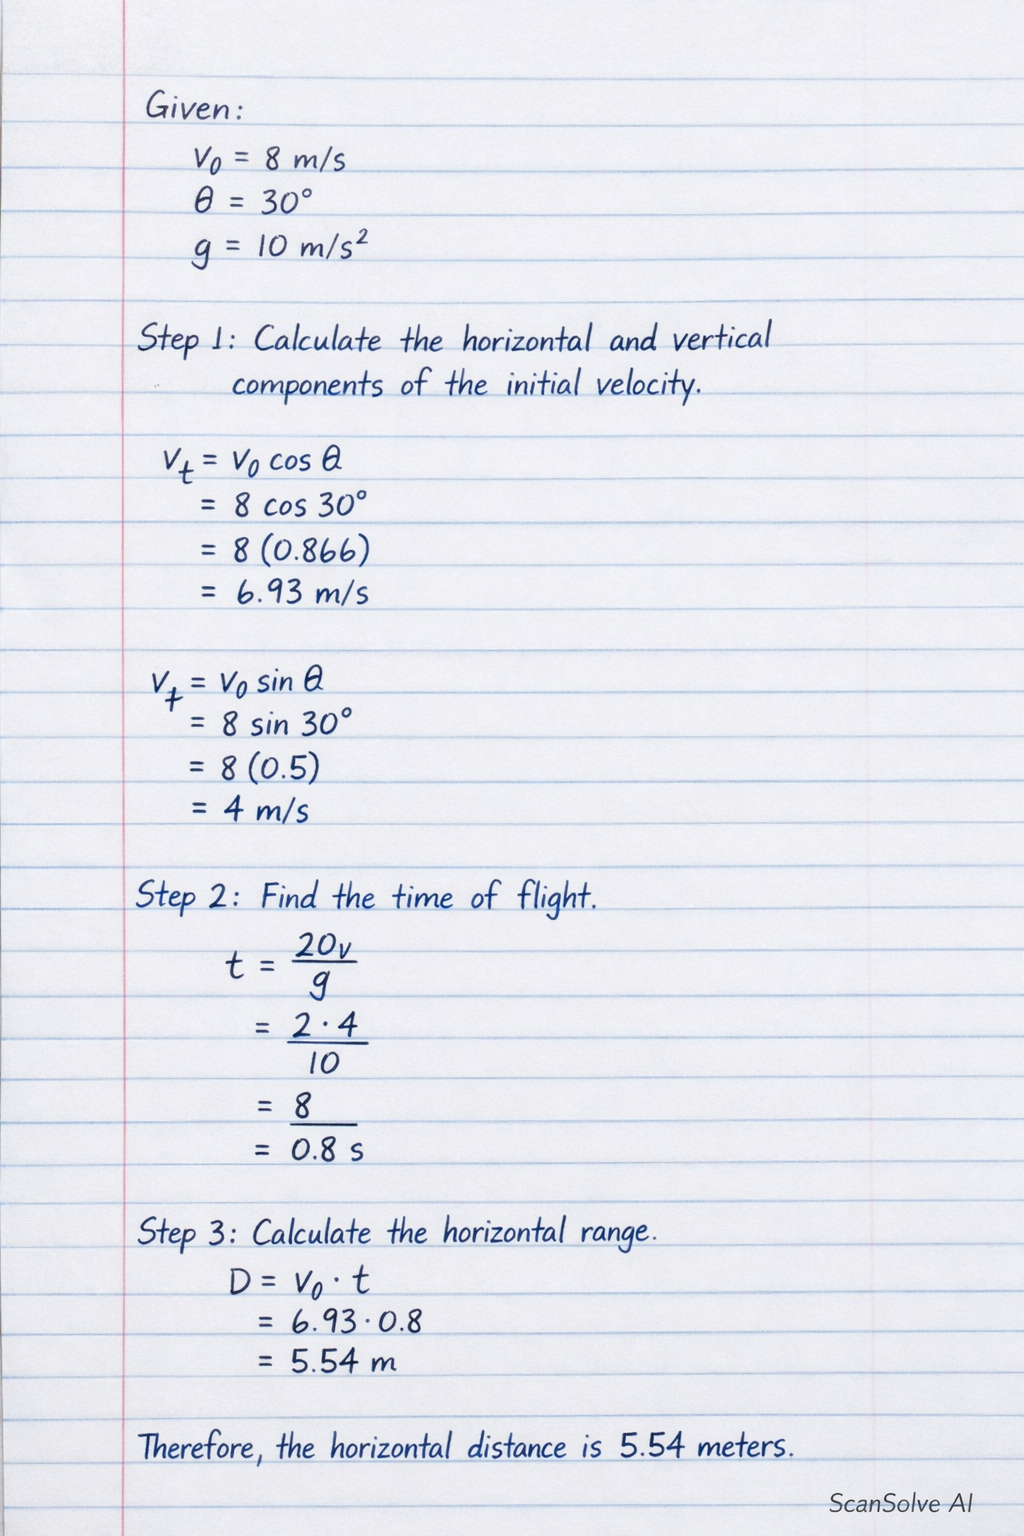 Given:
v₀ = 8 m/s
θ = 30°
g = 10 m/s²
Step 1: Calculate the horizontal and vertical
components of the initial velocity.
vₜ = v₀ cos θ
= 8 cos 30°
= 8 (0.866)
= 6.93 m/s
vₜ = v₀ sin θ
= 8 sin 30°
= 8 (0.5)
= 4 m/s
Step 2: Find the time of flight.
t = 20v
g
= 2 · 4
10
= 8
= 0.8 s
Step 3: Calculate the horizontal range.
D = v₀ · t
= 6.93 · 0.8
= 5.54 m
Therefore, the horizontal distance is 5.54 meters.
ScanSolve AI